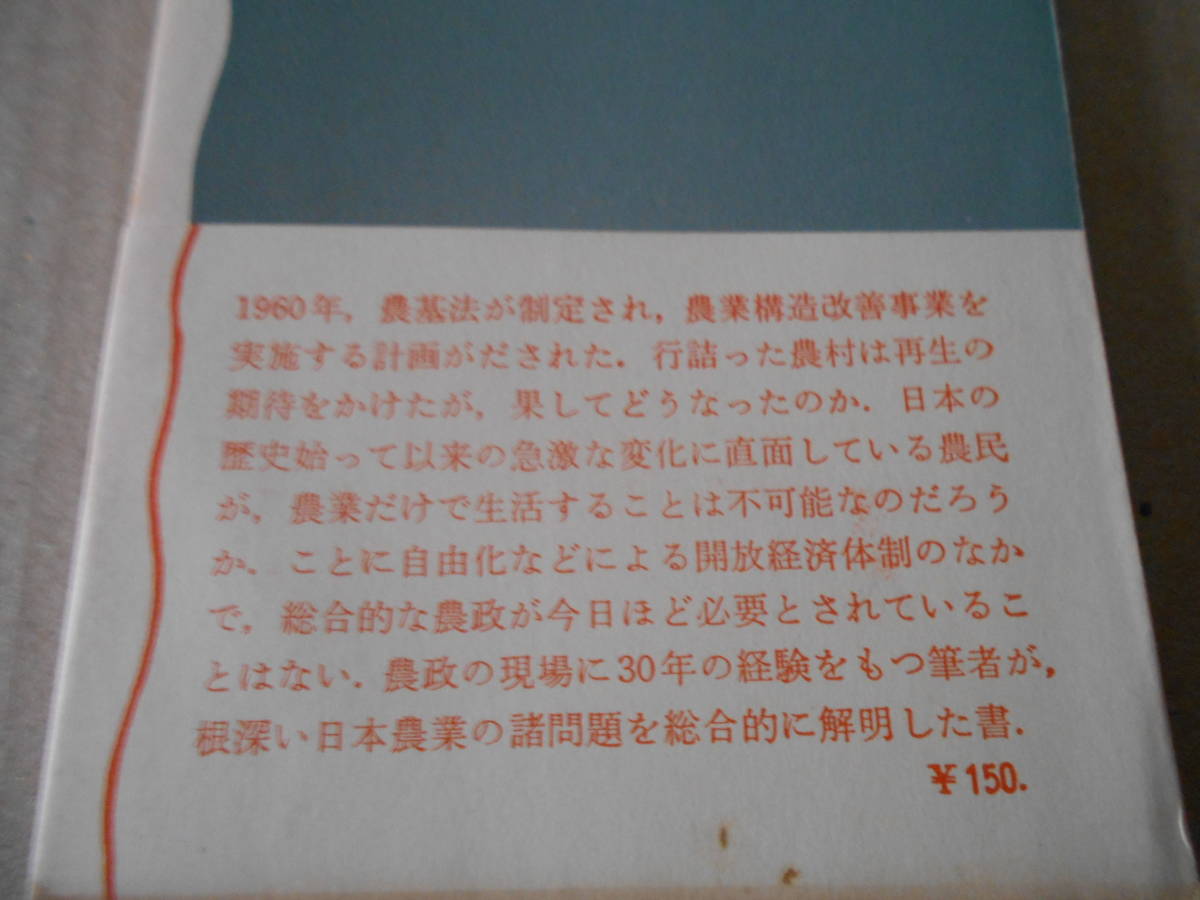 1960年，農基法が制定され，農業構造改善事業を
実施する計画がだされた．行詰った農村は再生の
期待をかけたが，果してどうなったのか．日本の
歴史始って以来の急激な変化に直面している農民
が，農業だけで生活することは不可能なのだろう
か．ことに自由化などによる開放経済体制のなか
で，総合的な農政が今日ほど必要とされているこ
とはない．農政の現場に30年の経験をもつ筆者が，
根深い日本農業の諸問題を総合的に解明した書．
￥150.